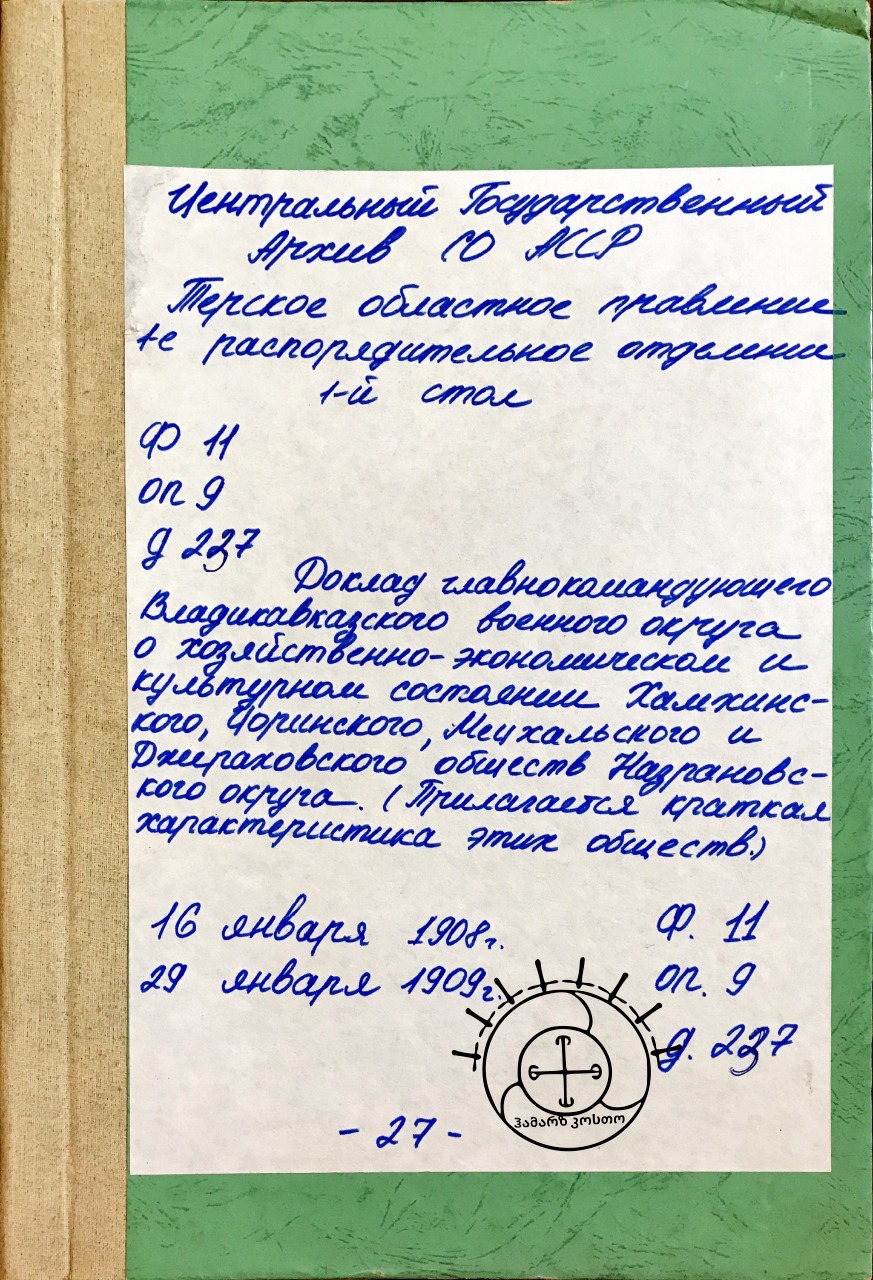 Центральный Государственный
Архив СО АССР
Терское областное правление
1-е распорядительное отделение
1-й стол
Ф 11
оп 9
д 227
Доклад главнокомандующего
Владикавказского военного округа
о хозяйственно-экономическом и
культурном состоянии Хамхинс-
кого, Цоринского, Мецхальского и
Джераховского обществ Назрановс-
кого округа. (Прилагается краткая
характеристика этих обществ.)
16 января 1908г.
Ф. 11
29 января 1909г.
оп. 9
д. 227
ჰამარზ კოსთო
- 27 -